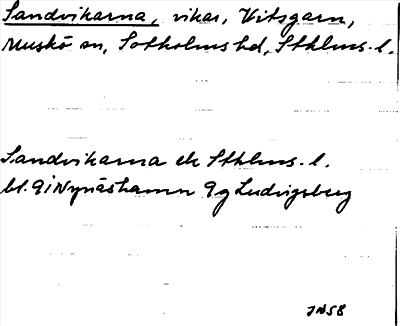 Sandvikarna, vikar, Vitsgarn,
Muskö sn, Sotholms hd, Sthlms. l.
Sandvikarna ek Sthlms. l.
bl. 9i Nynäshamn 9g Ludvigsberg
JN58